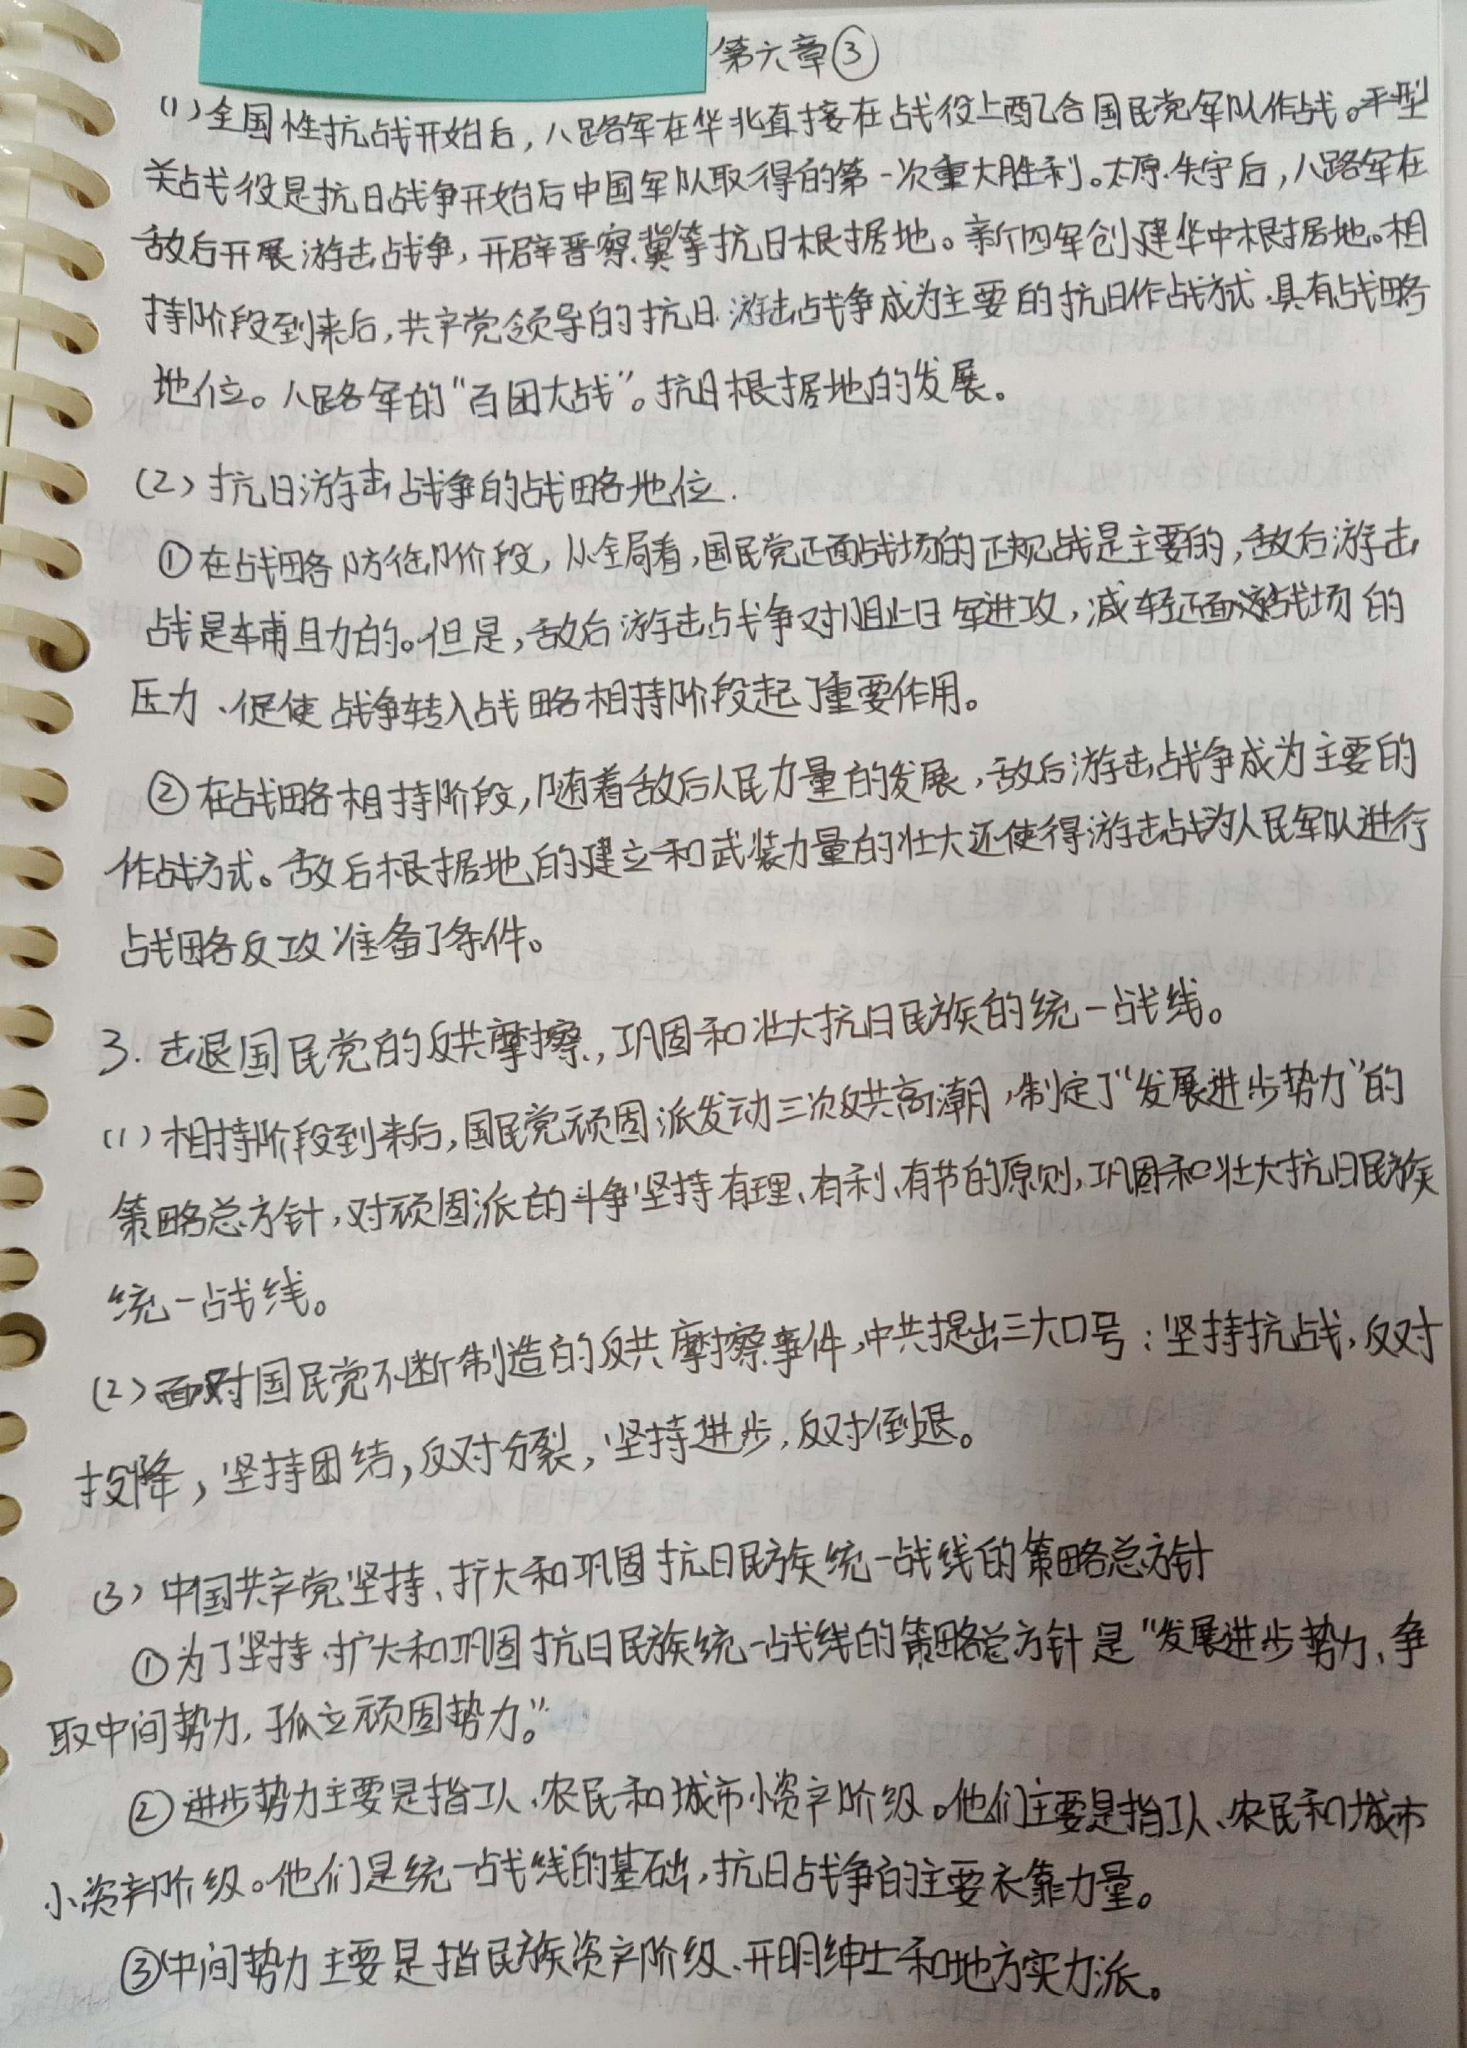 第六章③
(1)全国性抗战开始后,八路军在华北直接在战役上配合国民党军队作战。平型
关战役是抗日战争开始后中国军队取得的第一次重大胜利。太原失守后,八路军在
敌后开展游击战争,开辟晋察冀等抗日根据地。新四军创建华中根据地。相
持阶段到来后,共产党领导的抗日游击战争成为主要的抗日作战方式,具有战略
地位。八路军的“百团大战”。抗日根据地的发展。
(2)抗日游击战争的战略地位.
①在战略防御阶段,从全局看,国民党正面战场的正规战是主要的,敌后游击
战是辅助的。但是,敌后游击战争对阻止日军进攻,减轻正面战场的
压力、促使战争转入战略相持阶段起了重要作用。
②在战略相持阶段,随着敌后人民力量的发展,敌后游击战争成为主要的
作战方式。敌后根据地的建立和武装力量的壮大还使得游击战为人民军队进行
战略反攻准备了条件。
3.击退国民党的反共摩擦,巩固和壮大抗日民族的统一战线。
(1)相持阶段到来后,国民党顽固派发动三次反共高潮,制定了“发展进步势力”的
策略总方针,对顽固派的斗争坚持有理、有利、有节的原则,巩固和壮大抗日民族
统一战线。
(2)面对国民党不断制造的反共摩擦事件,中共提出三大口号:坚持抗战,反对
投降,坚持团结,反对分裂,坚持进步,反对倒退。
(3)中国共产党坚持、扩大和巩固抗日民族统一战线的策略总方针
①为了坚持、扩大和巩固抗日民族统一战线的策略总方针是“发展进步势力、争
取中间势力,孤立顽固势力。”
②进步势力主要是指工人、农民和城市小资产阶级。他们主要是指工人、农民和城市
小资产阶级。他们是统一战线的基础,抗日战争的主要依靠力量。
③中间势力主要是指民族资产阶级、开明绅士和地方实力派。